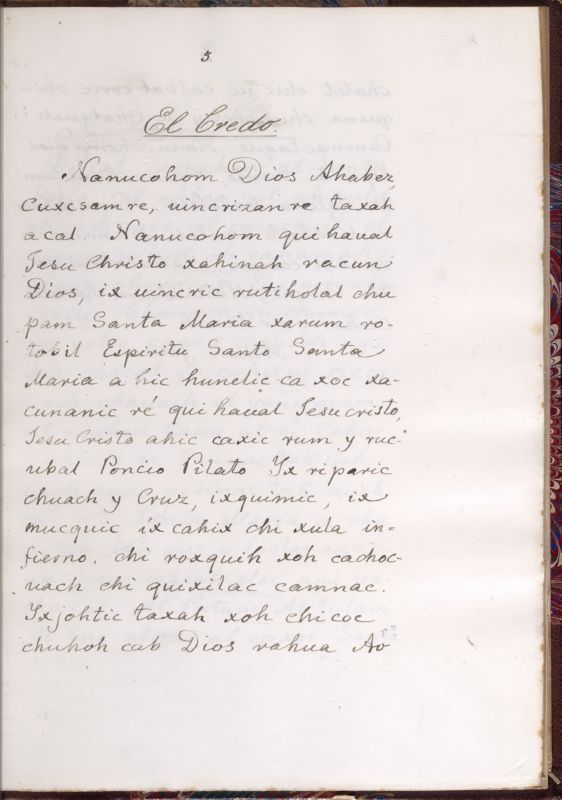 5.
El Credo.
Nanucohom Dios Ahabez,
Cuxcsamre, uincrizan re taxah
acal. Nanucohom qui haual
Jesu Christo xahinah racun
Dios, ix uincric rutiholal chu
pam Santa Maria xarum ro-
tobil Espiritu Santo Santa
Maria a hic hunelic ca xoc xa-
cunanic ré qui haual Jesucristo,
Jesu Cristo ahic caxic rum y ruc-
ubal Poncio Pilato Ix riparic
chuach y Cruz, ixquimic, ix
mucquic ix cahix chi xula in-
fierno. chi roxquih xoh cachoc-
uach chi quixilac camnac.
Ixjohtic taxah xoh chicoc
chuhoh cab Dios rahua Ao